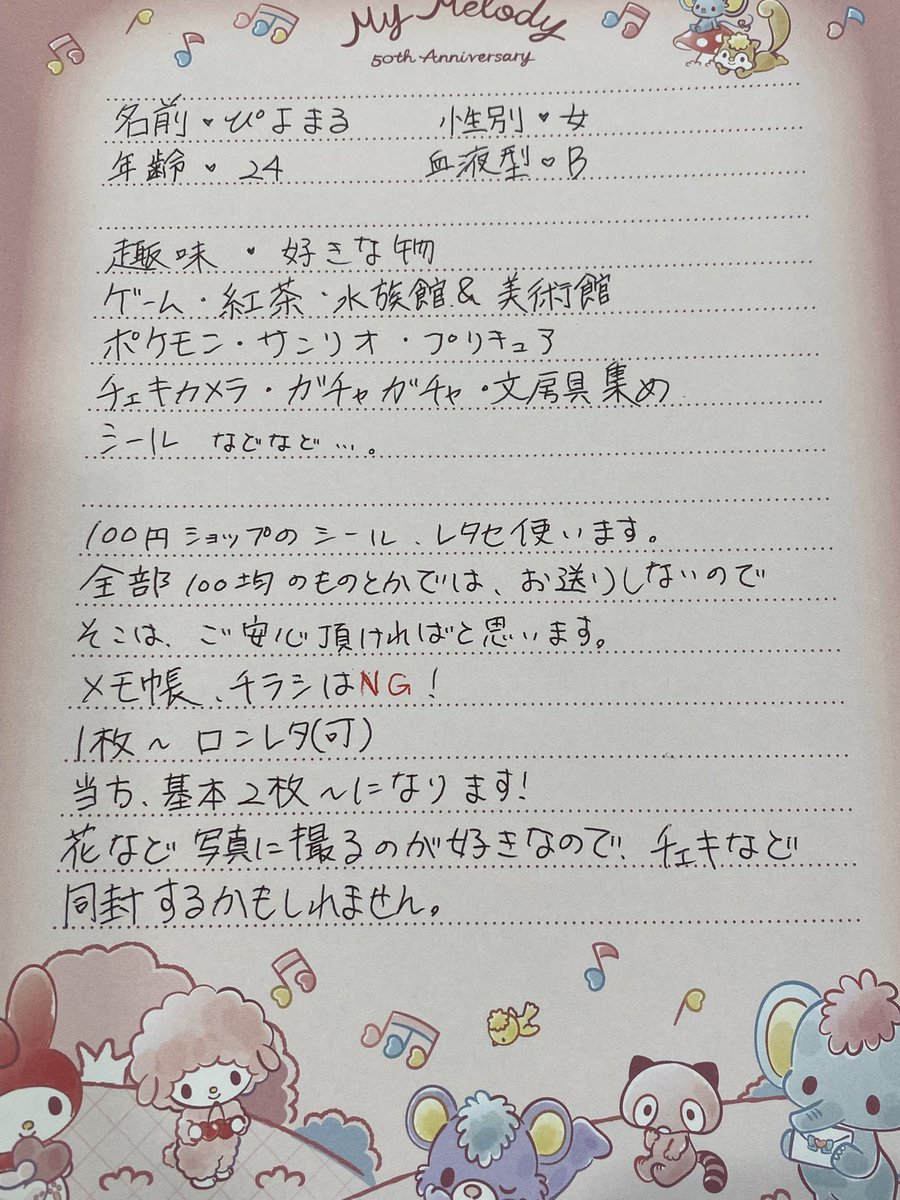 My Melody
50th Anniversary
名前♥ぴよまる 性別♥女
年齢♥24 血液型♥B
趣味・好きな物
ゲーム・紅茶・水族館&美術館
ポケモン・サンリオ・プリキュア
チェキカメラ・ガチャガチャ・文房具集め
シール などなど…。
100円ショップのシール、レタセ使います。
全部100均のものとかでは、お送りしないので
そこは、ご安心頂ければと思います。
メモ帳、チラシはNG!
1枚～ロンレタ(可)
当方、基本2枚～になります!
花など写真に撮るのが好きなので、チェキなど
同封するかもしれません。